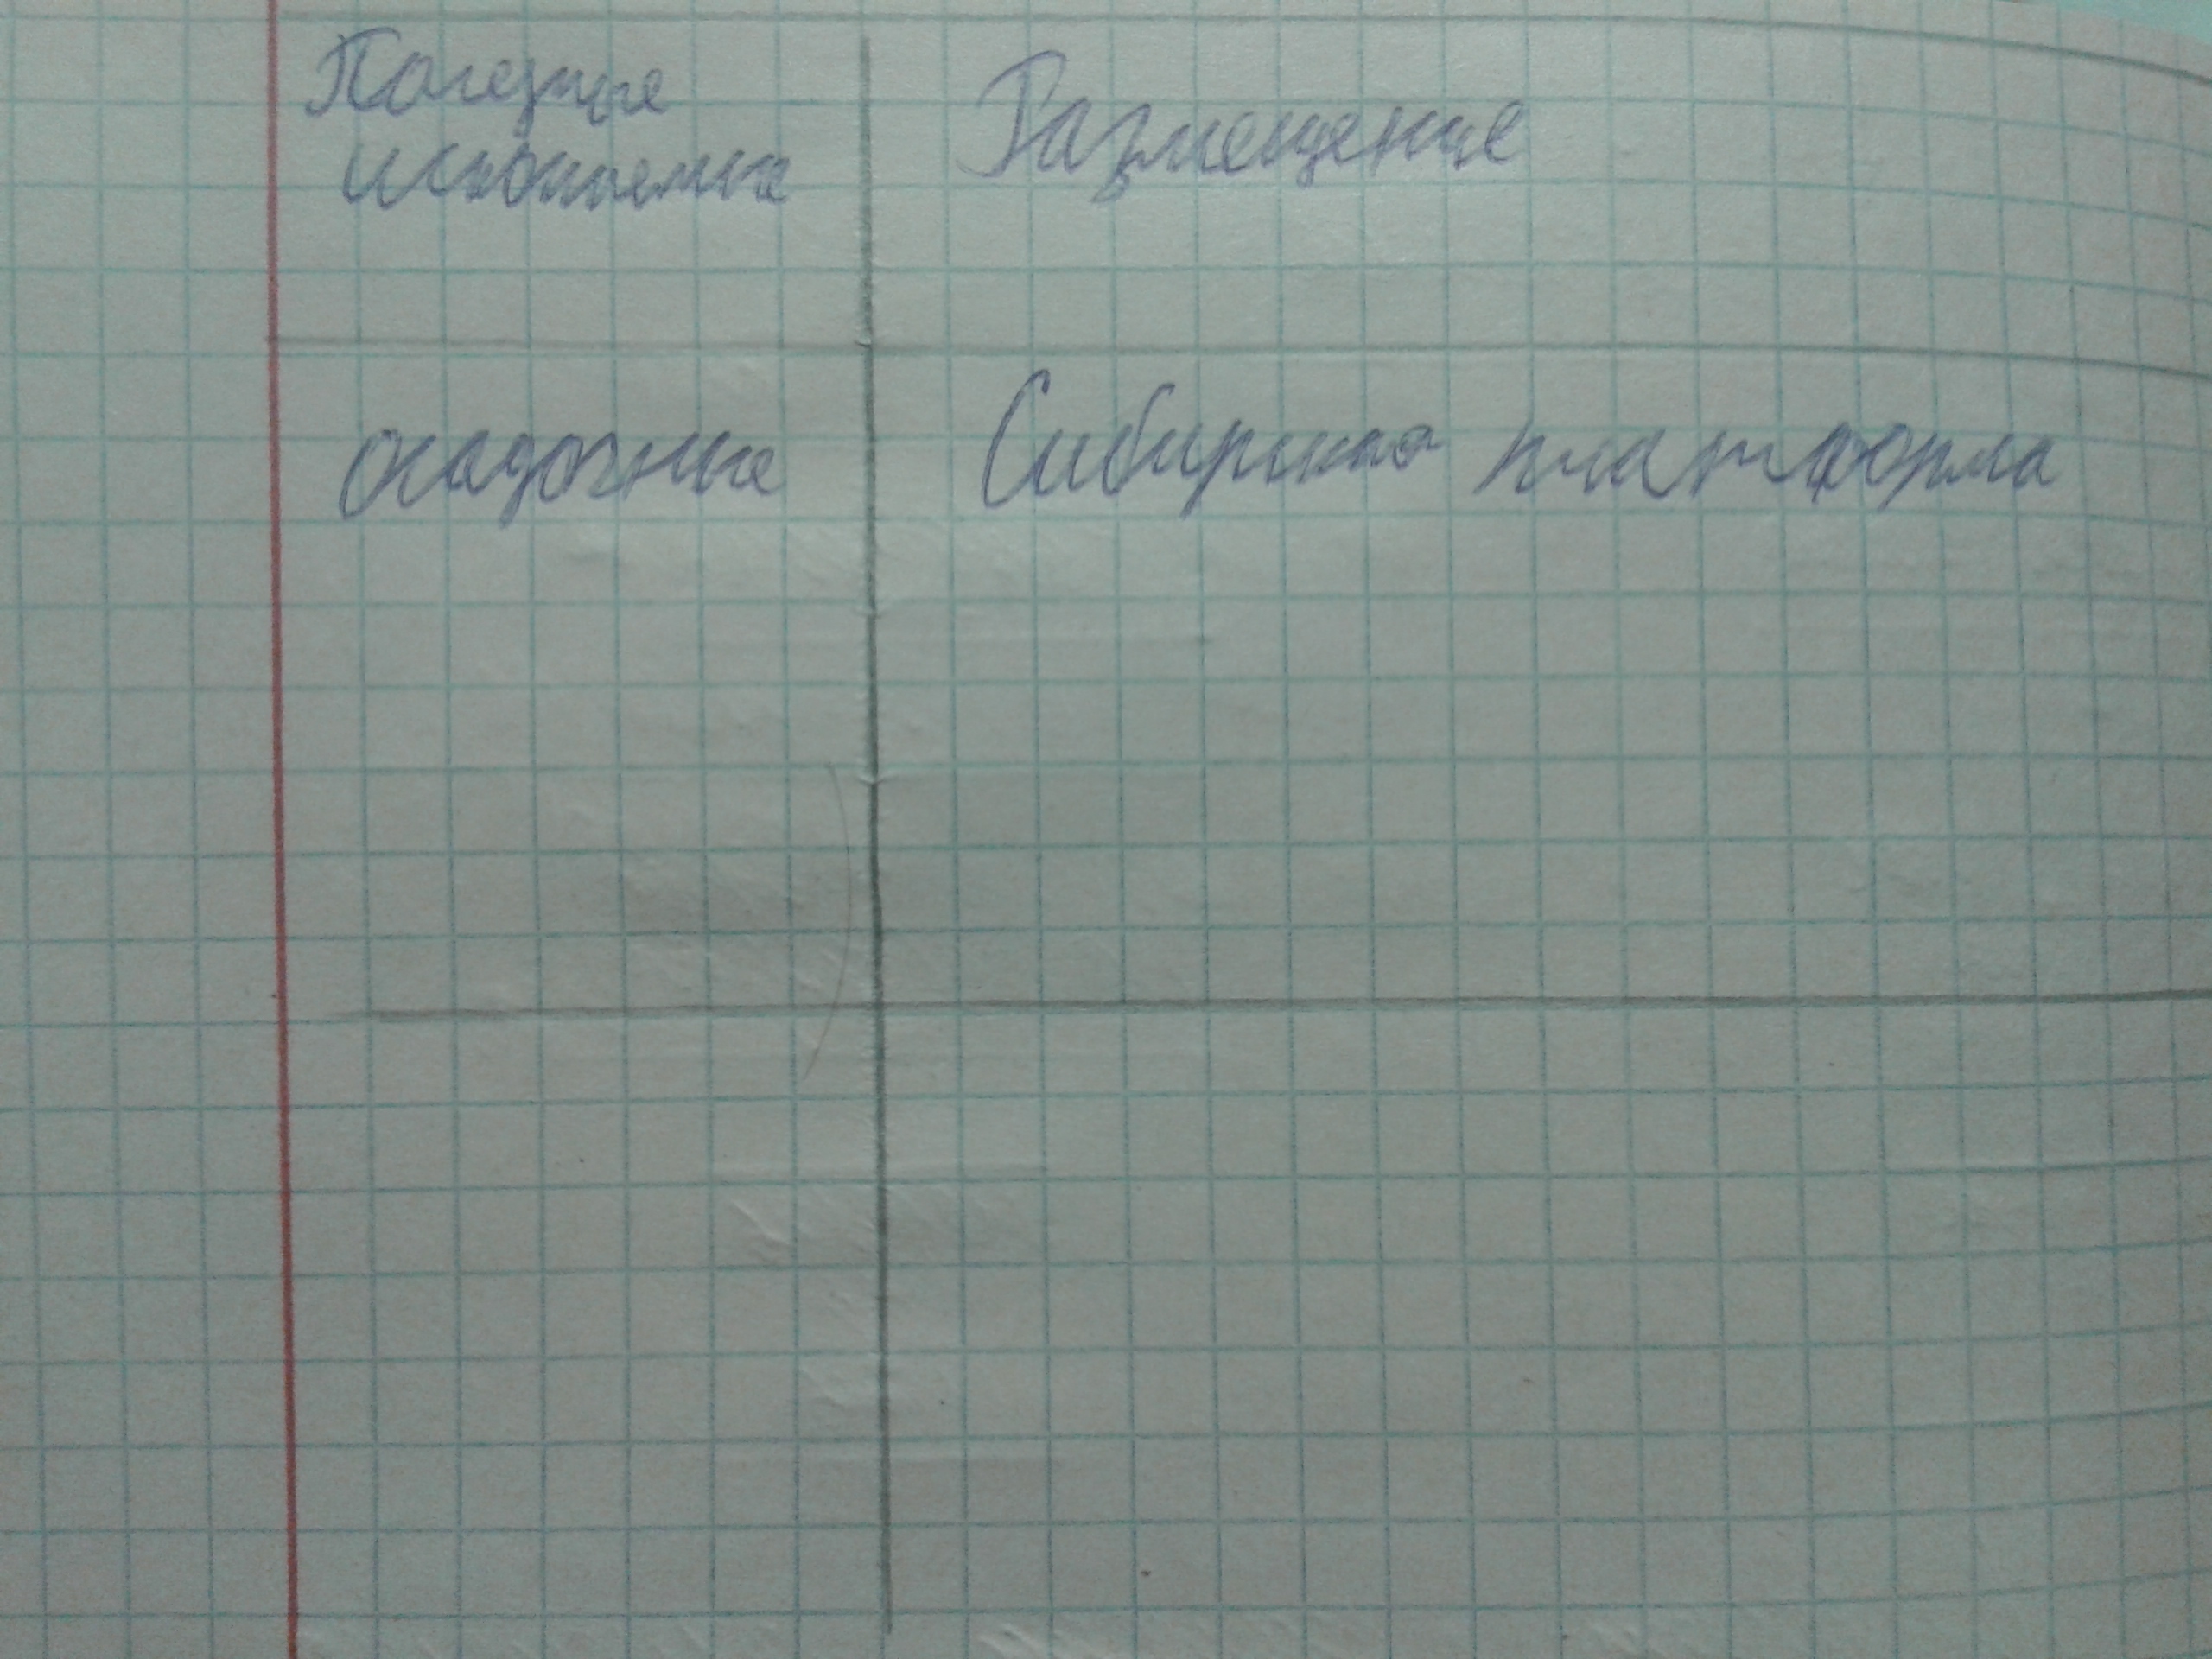 Полезные
ископаемые
Размещение
осадочные
Сибирская платформа